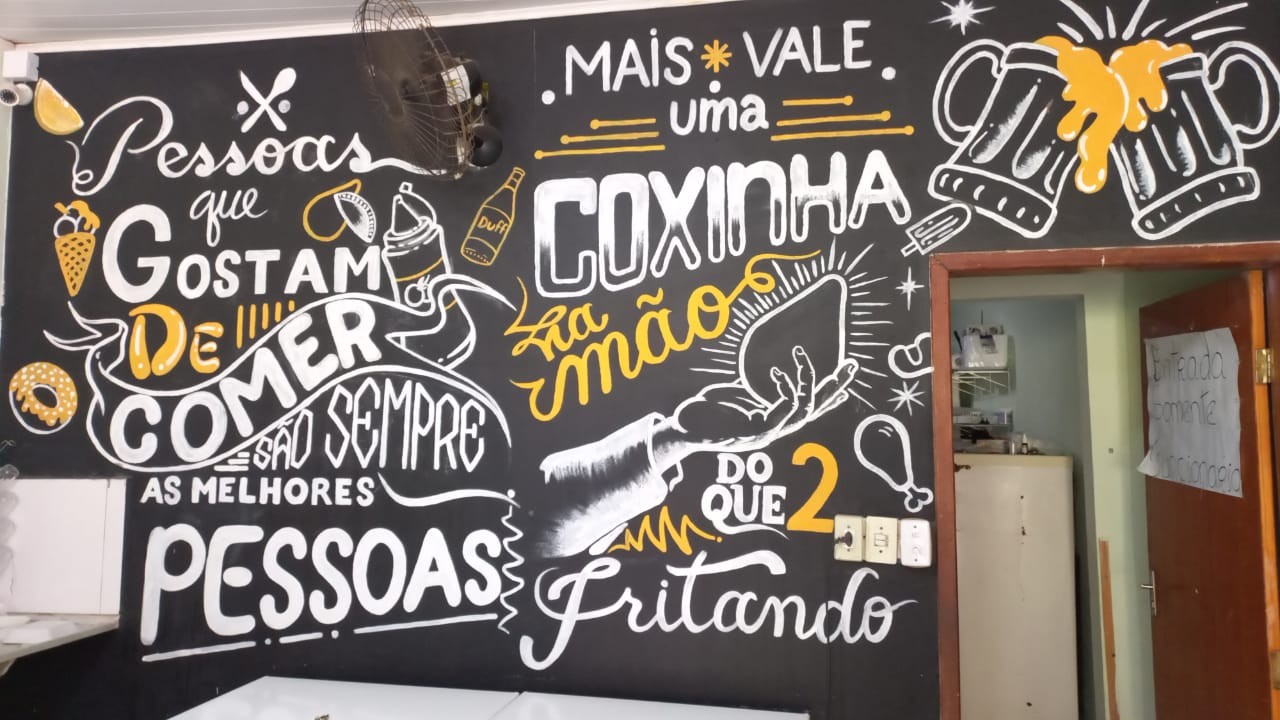 Pessoas
que
GOSTAM
DE
COMER
SÃO SEMPRE
AS MELHORES
PESSOAS
Duff
MAiS * VALE
uma
COXiNHA
na
mão
DO
QUE 2
Fritando
Entrada
Somente
Funcionario